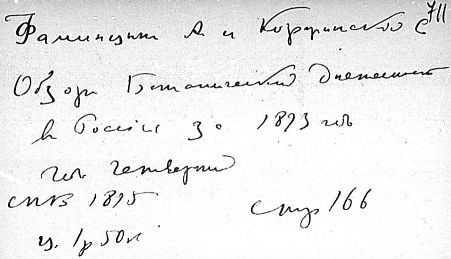 711
Фаминцин А. и Коржинский С
Обзор Ботанической Деятельност
в России за 1893 год
год четвертый
СПБ 1895 стр 166
ц. 1р 50к